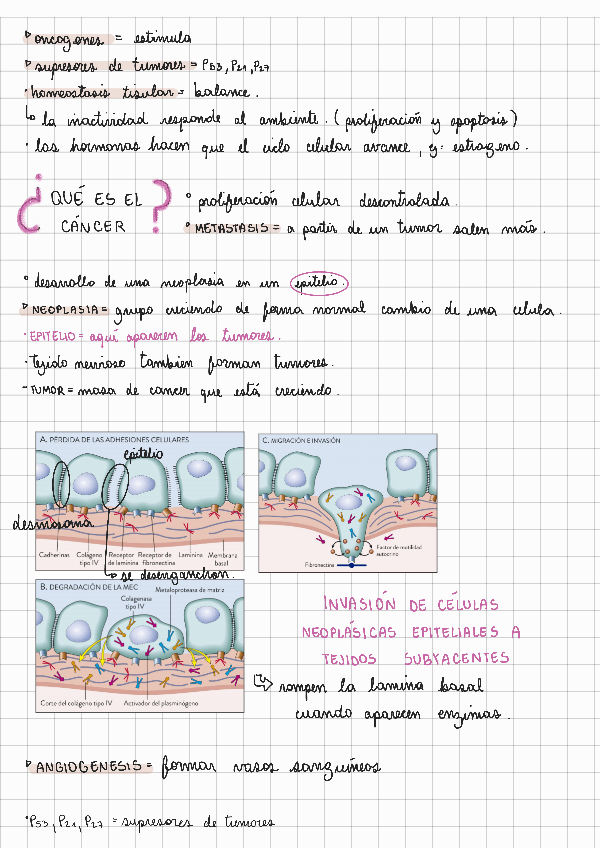 ▷ oncogenes = estimula
▷ supresores de tumores = P53, P21, P27
· homeostasis tisular = balance.
↳ la inactividad responde al ambiente. (proliferación y apoptosis)
· las hormonas hacen que el ciclo celular avance, ej: estrogeno.
¿QUÉ ES EL CÁNCER?
° proliferación celular descontrolada.
° METASTASIS = a partir de un tumor salen más.
° desarrollo de una neoplasia en un epitelio.
▷ NEOPLASIA = grupo creciendo de forma normal cambio de una celula.
· EPITELIO = aquí aparecen los tumores.
· tejido nervioso tambien forman tumores.
- TUMOR = masa de cancer que está creciendo.
A. PÉRDIDA DE LAS ADHESIONES CELULARES
epitelio
desmosoma
Cadherinas
Colágeno tipo IV
Receptor de laminina
Receptor de fibronectina
Laminina
Membrana basal
↳ se desenganchan.
C. MIGRACIÓN E INVASIÓN
Factor de motilidad autocrino
Fibronectina
B. DEGRADACIÓN DE LA MEC
Colagenasa tipo IV
Metaloproteasa de matriz
Corte del colágeno tipo IV
Activador del plasminógeno
INVASIÓN DE CÉLULAS
NEOPLÁSICAS EPITELIALES A
TEJIDOS SUBYACENTES
↳ rompen la lamina basal
cuando aparecen enzimas.
▷ ANGIOGENESIS = formar vasos sanguíneos
· P53, P21, P27 = supresores de tumores